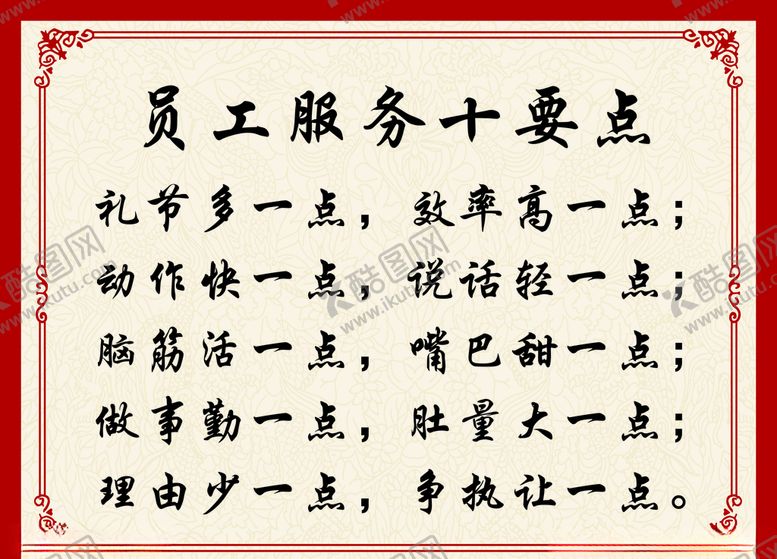 员工服务十要点
礼节多一点，效率高一点；
动作快一点，说话轻一点；
脑筋活一点，嘴巴甜一点；
做事勤一点，肚量大一点；
理由少一点，争执让一点。
酷图网
www.ikutu.com
酷图网
www.ikutu.com
酷图网
www.ikutu.com